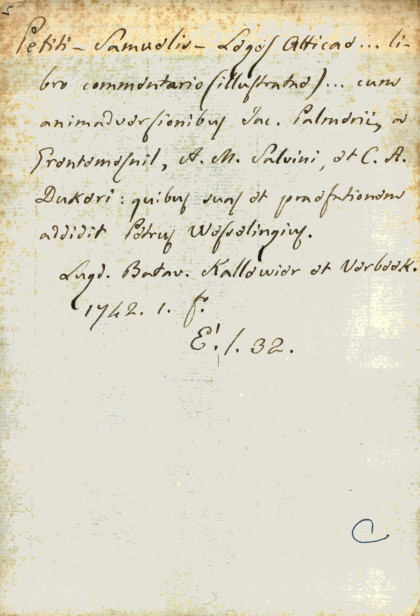 Petiti - Samuelis - Leges Atticae... li-
bro commentario illustratae)... cum
animadversionibus Jac. Palmerii, a
Grentemesnil, A. M. Salvini, et C. A.
Dukeri: quibus suas et praefationem
addidit Petrus Wesselingius.
Lugd. Batav. Kallewier et Verbeek.
1742. 1. f.
E'. 1. 32.
C